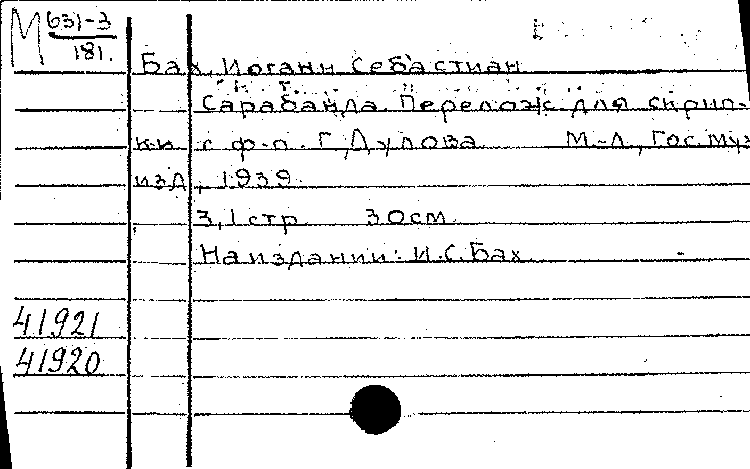 М 631-3
181.
Бах, Иоганн Себастиан
Сарабанда. Перелож. для скрип-
ки с ф-п. Г. Дулова М.-Л., Гос. муз
изд., 1939.
3, 1 стр. 30 см.
На издании: И. С. Бах
41921
41920